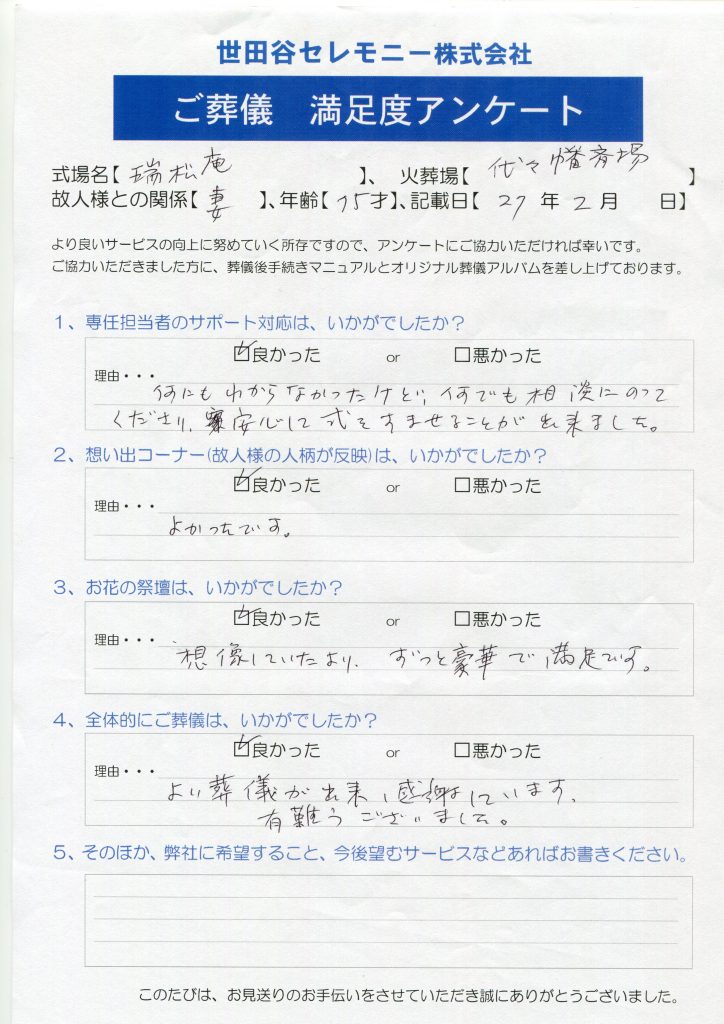 世田谷セレモニー株式会社
ご葬儀　満足度アンケート
式場名【 瑞松庵 】、 火葬場【 代々幡斎場 】
故人様との関係【 妻 】、年齢【 75才】、記載日【 27 年 2 月 日】
より良いサービスの向上に努めていく所存ですので、アンケートにご協力いただければ幸いです。
ご協力いただきました方に、葬儀後手続きマニュアルとオリジナル葬儀アルバムを差し上げております。
1、専任担当者のサポート対応は、いかがでしたか？
☑良かった or □悪かった
理由・・・
何にもわからなかったけど、何でも相談にのって
くださり、安心して式をすませることが出来ました。
2、想い出コーナー(故人様の人柄が反映)は、いかがでしたか？
☑良かった or □悪かった
理由・・・
よかったです。
3、お花の祭壇は、いかがでしたか？
☑良かった or □悪かった
理由・・・
想像していたより、ずっと豪華で満足です。
4、全体的にご葬儀は、いかがでしたか？
☑良かった or □悪かった
理由・・・
よい葬儀が出来、感謝しています、
有難うございました。
5、そのほか、弊社に希望すること、今後望むサービスなどあればお書きください。
このたびは、お見送りのお手伝いをさせていただき誠にありがとうございました。